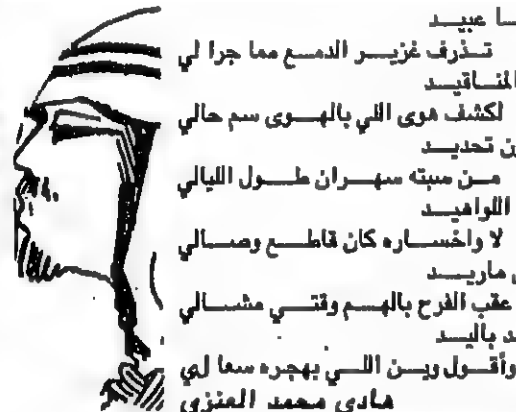 ـا عبيــد
تــذرف غزيــر الدمــع مما جرا لي
المنــاقيــد
لكشف هوى اللي بالهــوى سم حالي
ـن تحديــد
مــن سبته سهــران طــول الليالي
اللواهيــد
لا واخســاره كان قاطــع وصــالي
ـى ماريــد
عقب الفرح بالهــم وقتــي مشــالي
ـد باليــد
وأقــول ويــن اللــي بهجره سعا لي
هادي محمد العنزي